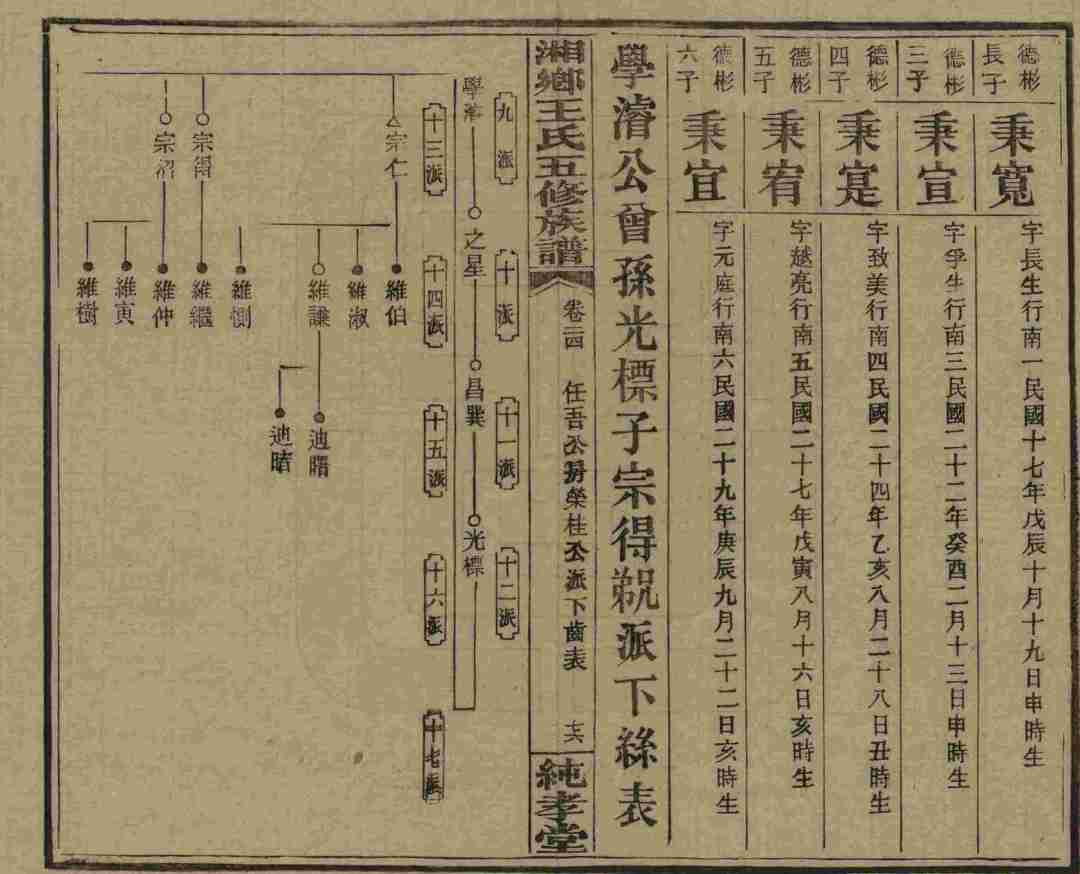 德彬
長子
秉寬
字長生行南一民國十七年戊辰十月十九日申時生
德彬
三子
秉宣
字孚生行南三民國二十二年癸酉二月十三日申時生
德彬
四子
秉寔
字致美行南四民國二十四年乙亥八月二十八日丑時生
德彬
五子
秉宥
字越亮行南五民國二十七年戊寅八月十六日亥時生
德彬
六子
秉宜
字元庭行南六民國二十九年庚辰九月二十二日亥時生
學濬公曾孫光標子宗得祝派下絲表
湘鄉王氏五修族譜
卷二四
任吾公房榮桂公派下齒表
純孝堂
九派
十派
十一派
十二派
學濬
之星
昌巽
光標
十三派
十四派
十五派
十六派
十七派
宗仁
宗得
宗沼
維伯
維淑
維謙
維惻
維繼
維仲
維寅
維樹
迪曙
迪睹